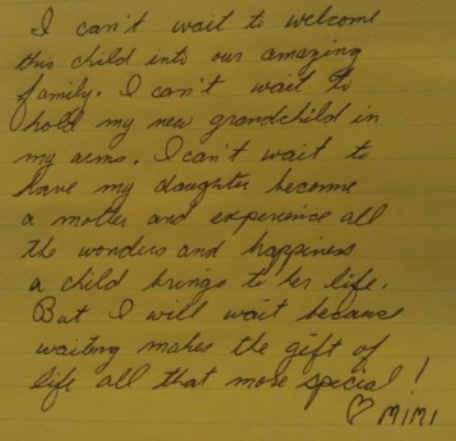 I can't wait to welcome
this child into our amazing
family. I can't wait to
hold my new grandchild in
my arms. I can't wait to
have my daughter become
a mother and experience all
the wonders and happiness
a child brings to her life.
But I will wait because
waiting makes the gift of
life all that more special!
♡ MIMI